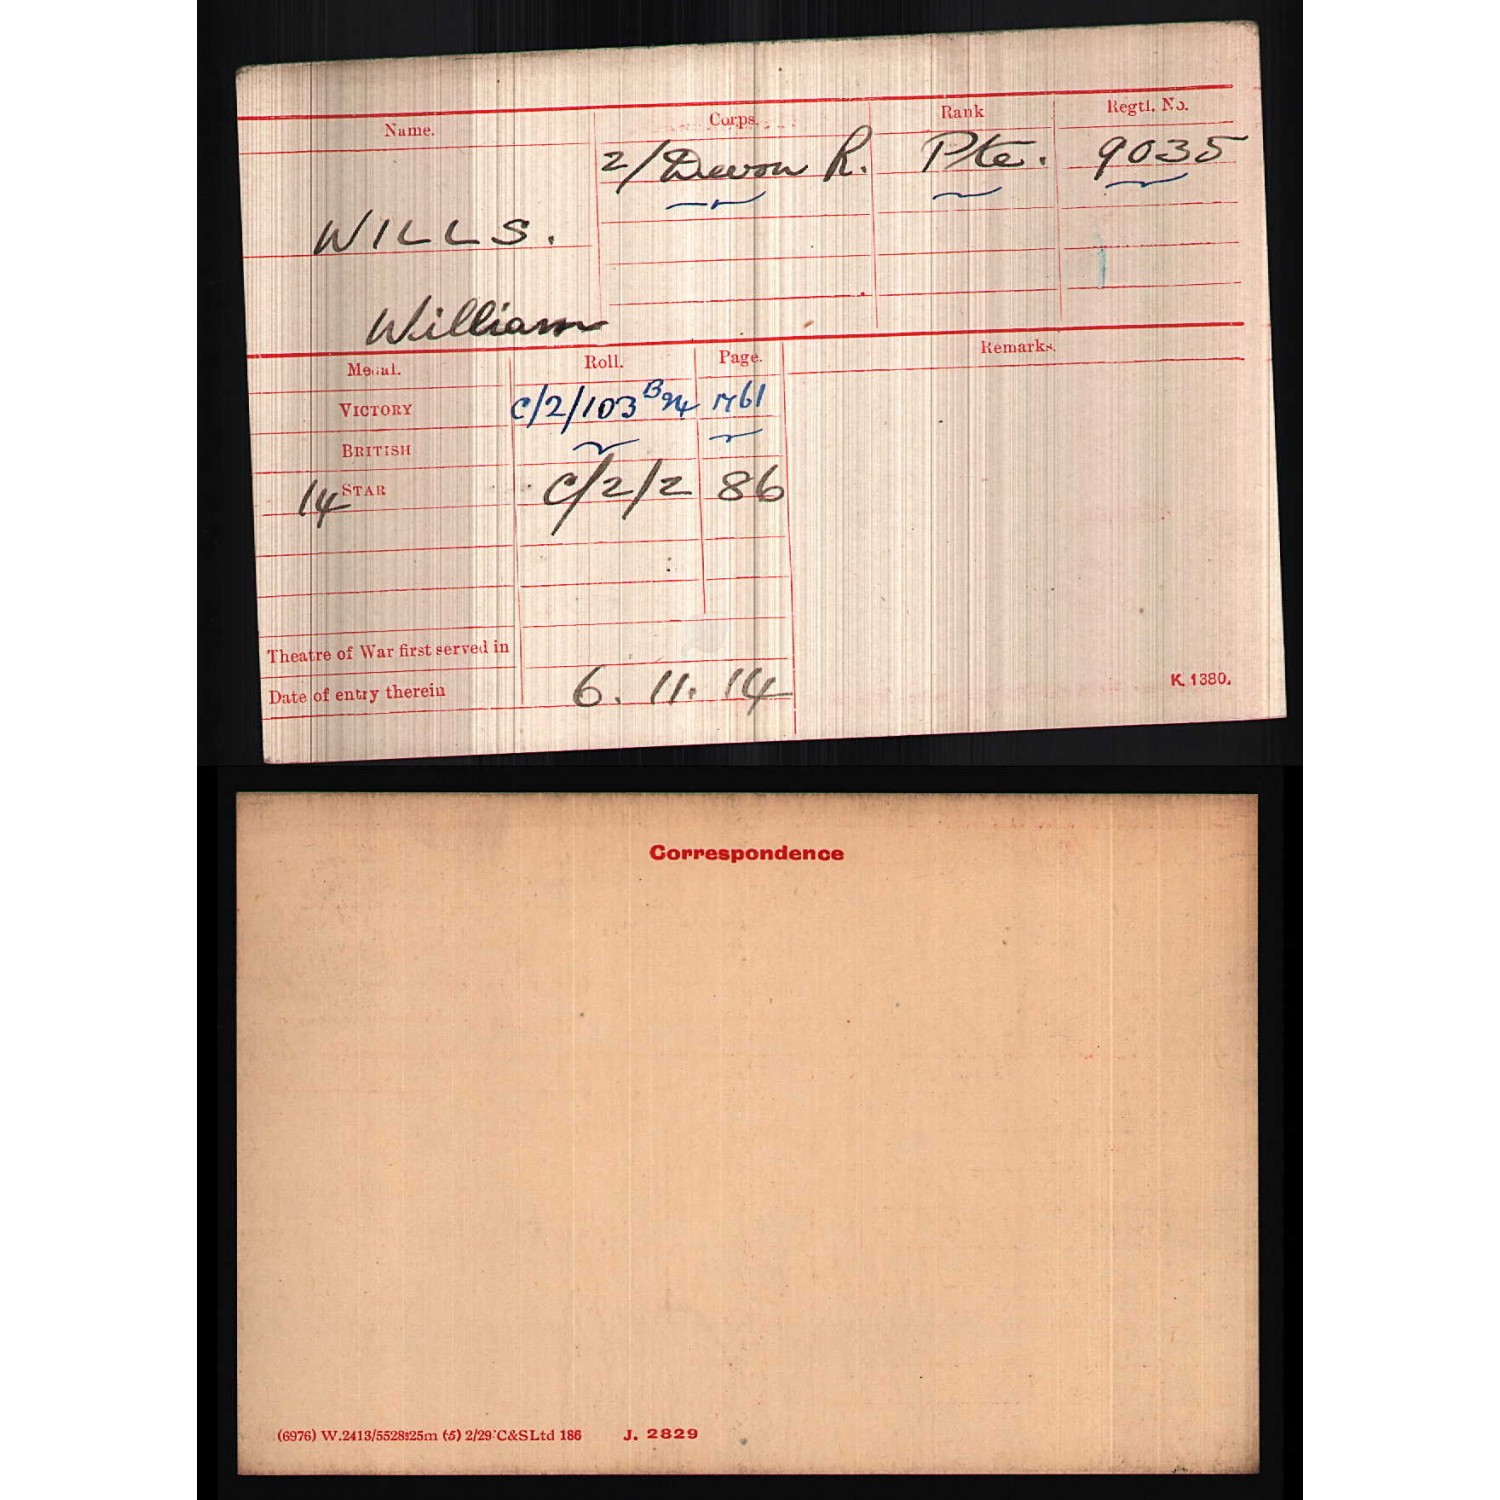 Name. Corps. Rank Regtl. No.
2/Devon R. Pte. 9035
WILLS.
William
Medal. Roll. Page. Remarks.
VICTORY C/2/103 B24 1761
BRITISH
14 STAR C/2/2 86
Theatre of War first served in
Date of entry therein 6. 11. 14
K. 1380.
Correspondence
(6976) W.2413/5528 25m (5) 2/29 C&SLtd 186 J. 2829